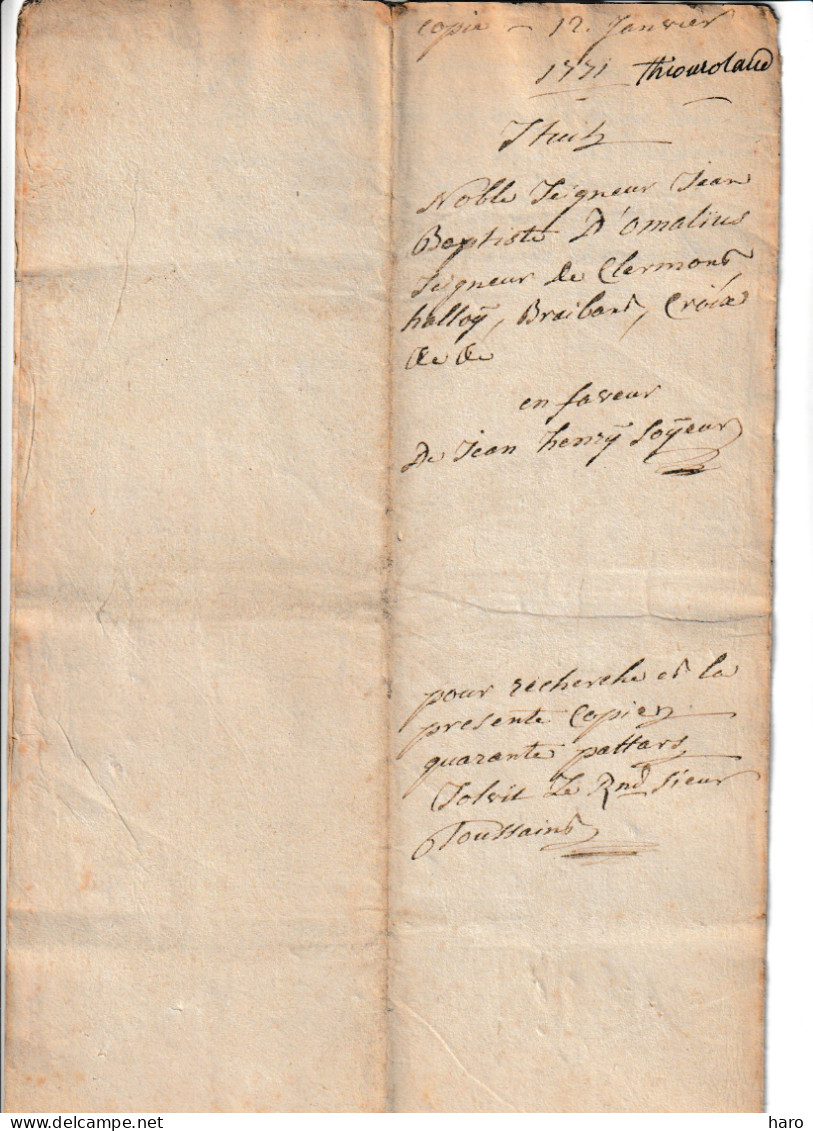 copie - 12. Janvier
1771 Thiourolaud
Stuit
Noble Seigneur Jean
Baptiste D'omalius
Seigneur De Clermont
halloÿ, Braibant, Croix
&c &c
en faveur
De Jean henrÿ Soÿeur
pour recherche et la
presente Copie
quarante pattars
Solvit Le Rnd Sieur
Toussaint
haro